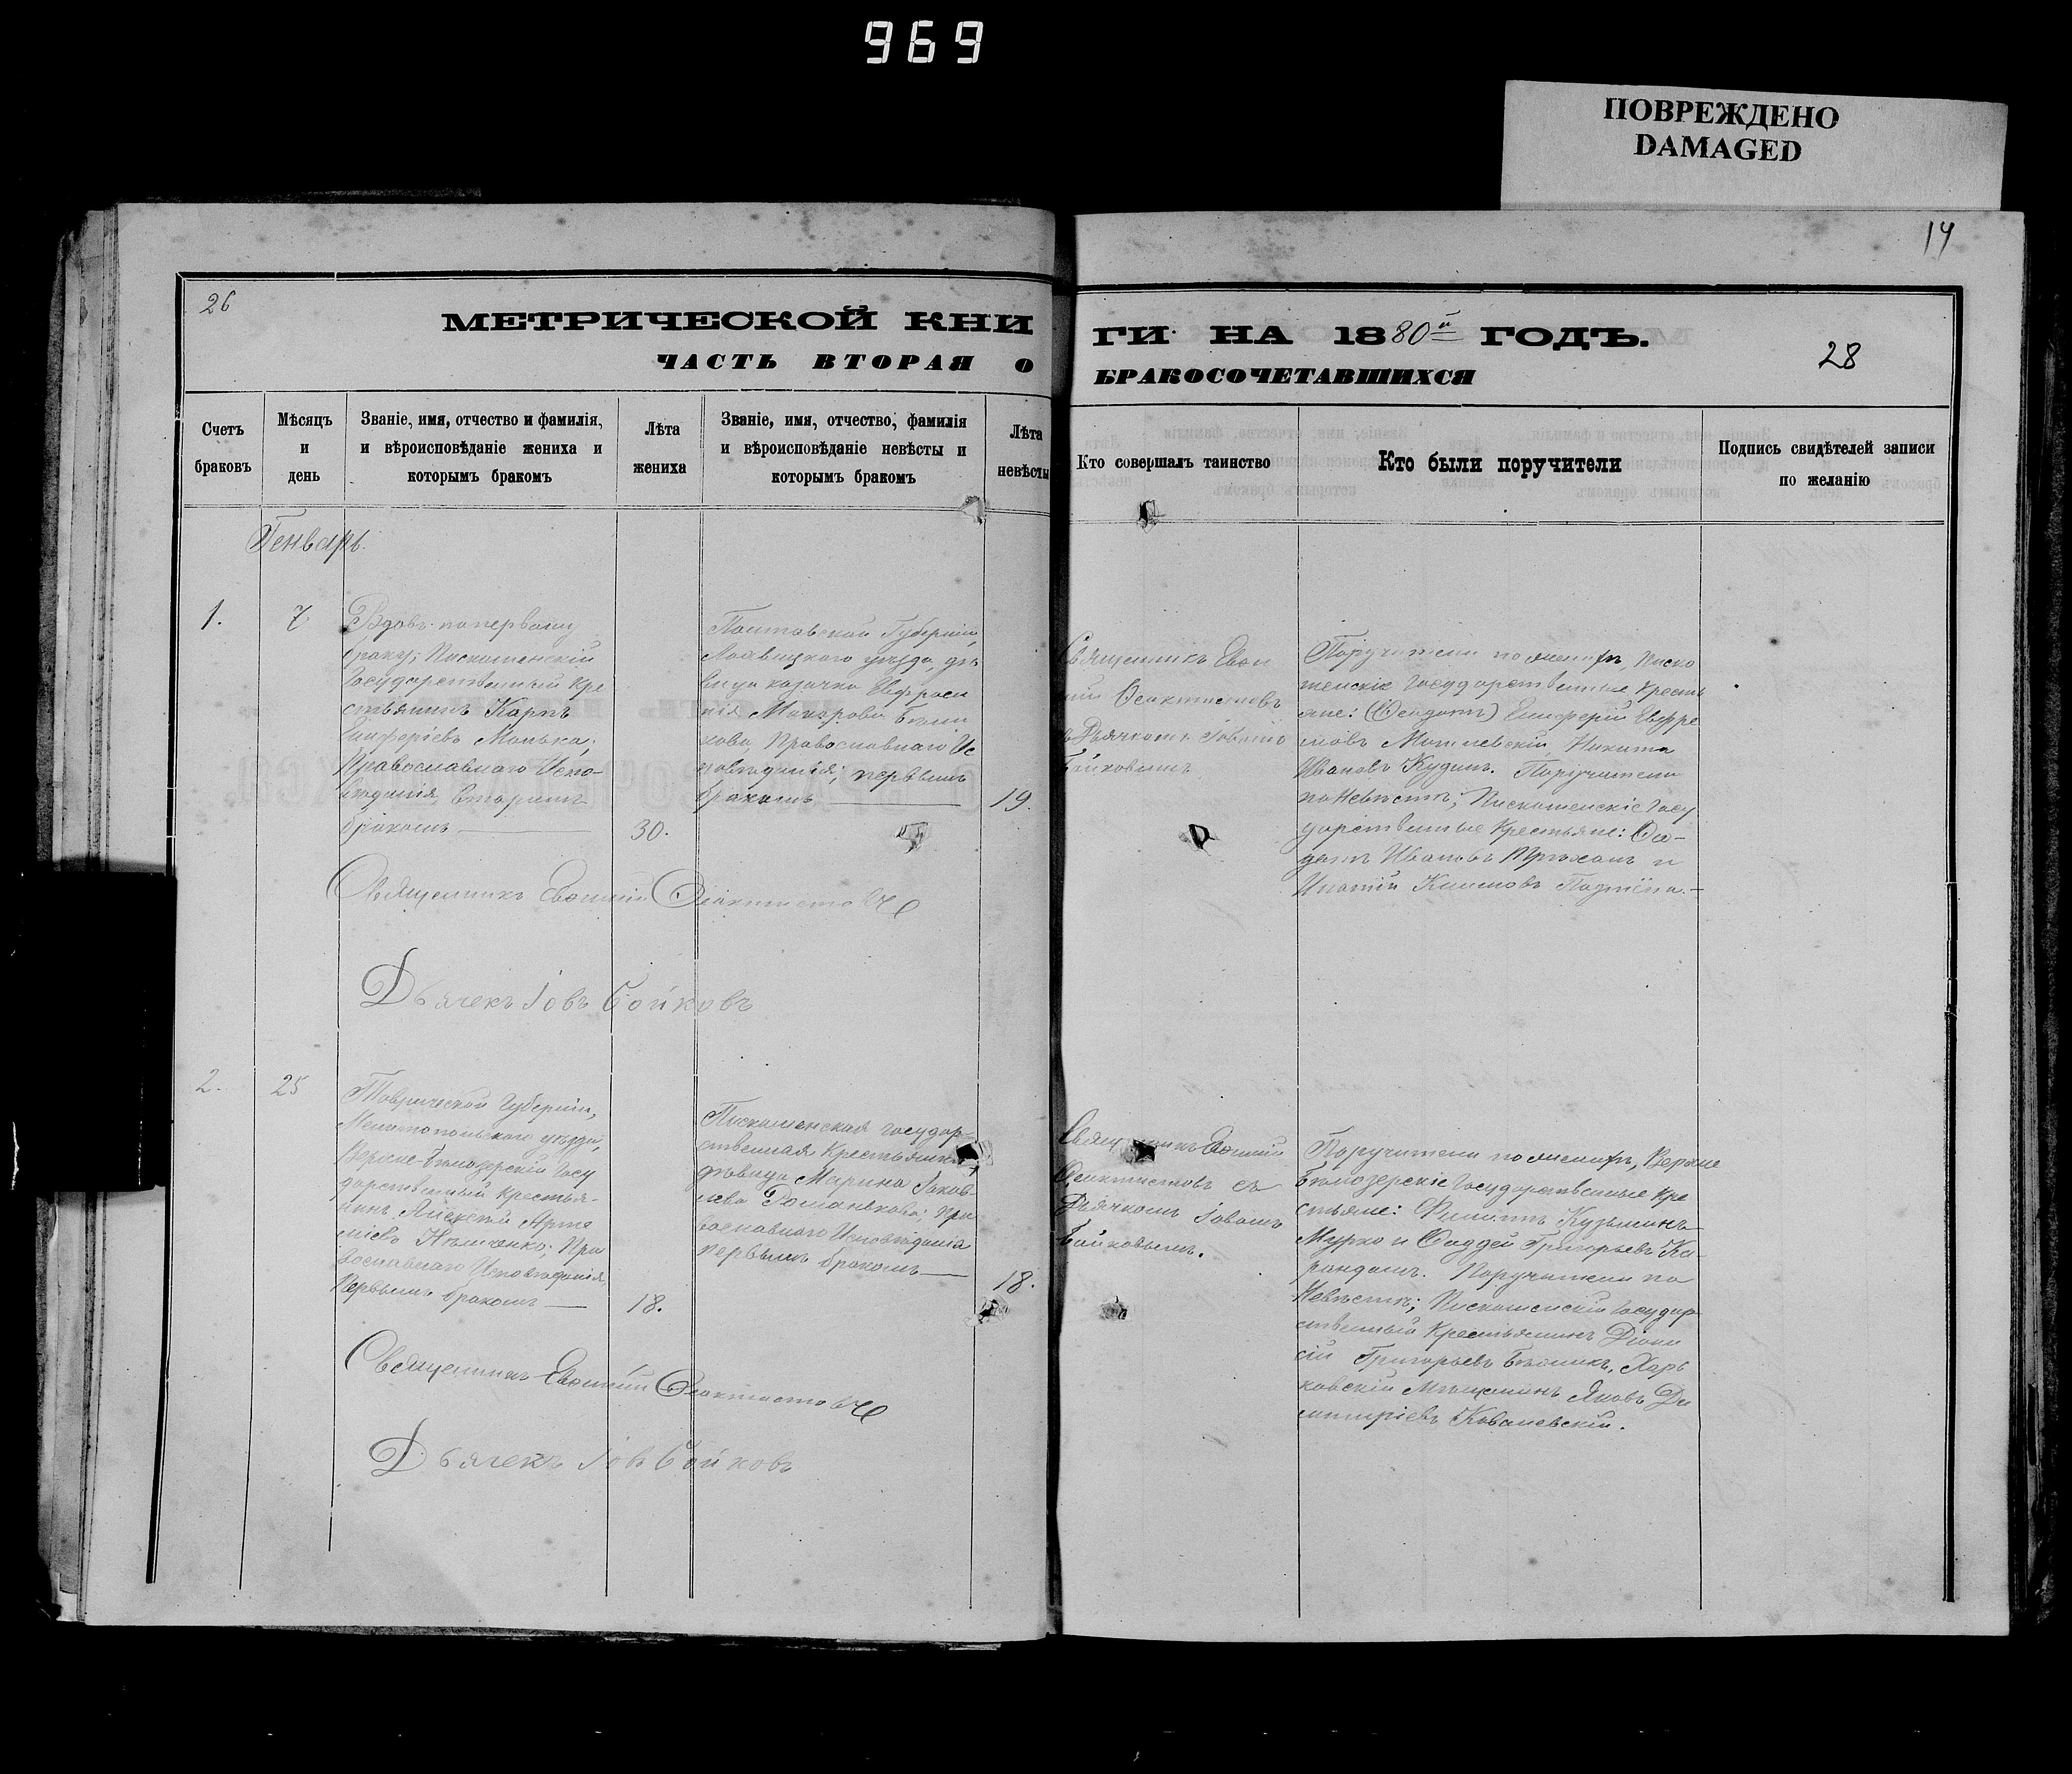 969
ПОВРЕЖДЕНО
DAMAGED
14
26
МЕТРИЧЕСКОЙ КНИ
ГИ НА 1880й ГОДЪ.
28
ЧАСТЬ ВТОРАЯ О
БРАКОСОЧЕТАВШИХСЯ
Счетъ
браковъ
Мѣсяцъ
и
день
Званіе, имя, отчество и фамилія,
и вѣроисповѣданіе жениха и
которымъ бракомъ
Лѣта
жениха
Званіе, имя, отчество, фамилія
и вѣроисповѣданіе невѣсты и
которымъ бракомъ
Лѣта
невѣсты
Кто совершалъ таинство
Кто были поручители
Подпись свидѣтелей записи
по желанію
Генварь.
1.
7
Вдовъ по первому
браку; Пискошенскій
Государственный Кре
стьянинъ Карпъ
Манько;
Православнаго Испо-
вѣданія, вторымъ
бракомъ
30.
Полтавской Губерніи,
уѣзда, дѣ
вица козачка Евфроси
нія
кова, Православнаго Ис
повѣданія; первымъ
бракомъ
19.
Священникъ Евѳи
мій Ѳеоктистовъ
съ Дьячкомъ Іовомъ
Бойковымъ
Поручители по женихѣ, Писко
шенскіе Государственные Кресть
яне: Евфре
мовъ Могилевскій, Никита
Ивановъ Кудинъ. Поручители
по Невѣстѣ; Пискошенскіе Госу
дарственные Крестьяне:
Ивановъ и
Климовъ
Священникъ Евѳимій Ѳеоктистовъ
Дьячекъ Іовъ Бойковъ
2.
25
Таврической Губерніи,
Мелитопольскаго уѣзда,
Верхне-Бѣлозерскій Госу
дарственный крестья-
нинъ Алексѣй Арте
міевъ Нѣмченко; Пра
вославнаго Исповѣданія,
Первымъ бракомъ
18.
Пискошенская Государ-
ственная Крестьянка
дѣвица Марина Іаков-
лева Романькова; Пра
вославнаго Исповѣданія
первымъ бракомъ
18.
Священникъ Евѳимій
Ѳеоктистовъ съ
Дьячкомъ Іовомъ
Бойковымъ.
Поручители по женихѣ, Верхне
Бѣлозерскіе Государственные Кре
стьяне: Филиппъ Кузьминъ
Мурко и Ѳаддей Григорьевъ Ка-
рандашъ. Поручители по
Невѣстѣ; Пискошенскій Государ
ственный Крестьянинъ Діони
сій Григорьевъ Бѣликъ, Харь
ковскій Мѣщанинъ Яковъ Ди
митріевъ Ковалевскій.
Священникъ Евѳимій Ѳеоктистовъ
Дьячекъ Іовъ Бойковъ